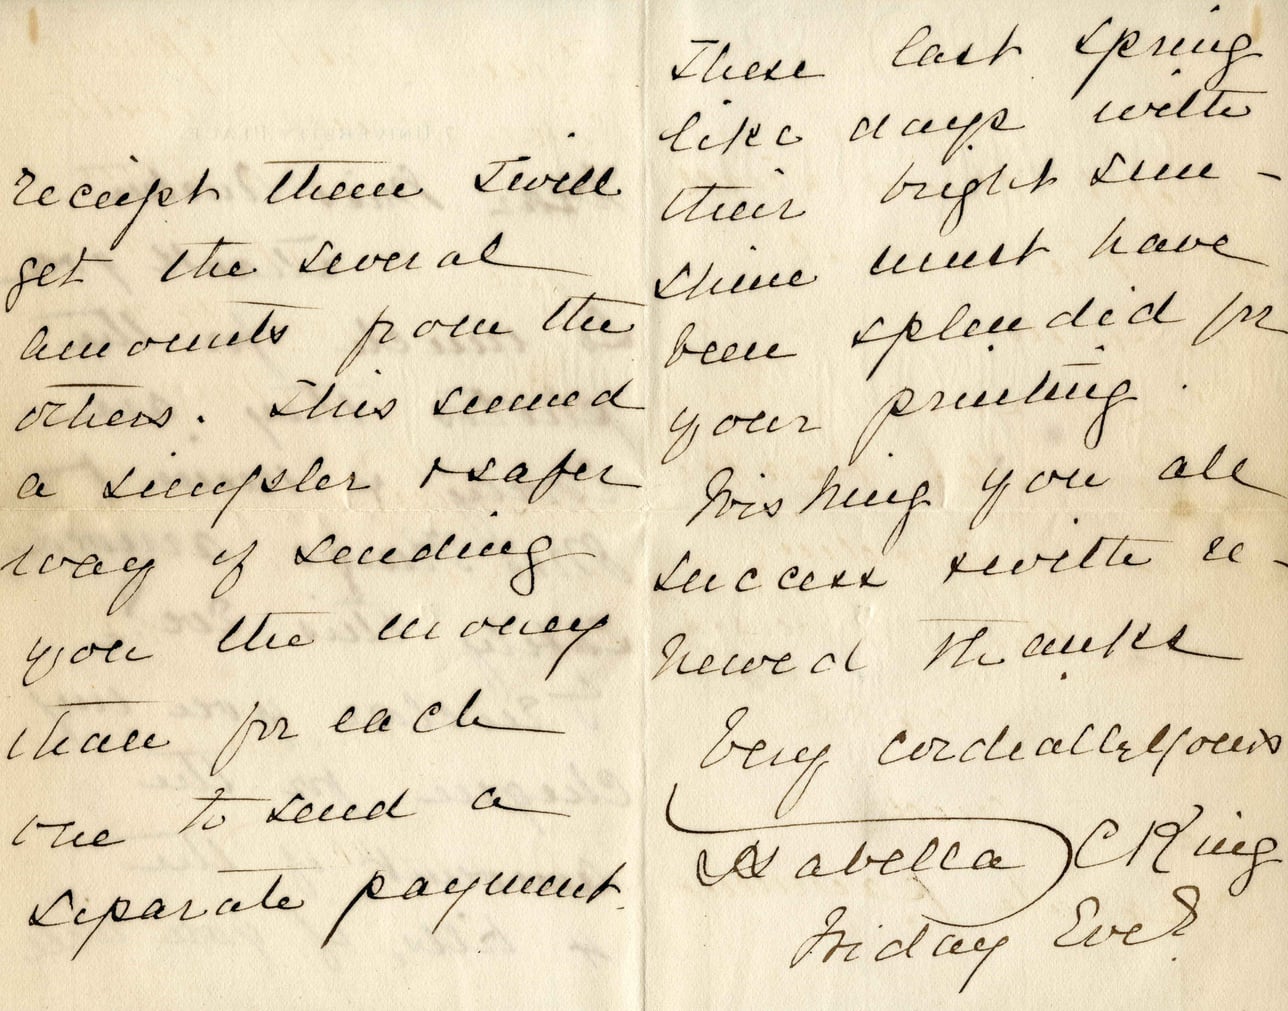 receipt them I will
get the several
amounts from the
others. This seemed
a simpler & safer
way of sending
you the money
than for each
one to send a
separate payment.
These last spring
like days with
their bright sun-
shine must have
been splendid for
your printing.
Wishing you all
success & with re-
newed thanks
Very cordially Yours
Isabella C King
Friday Eve